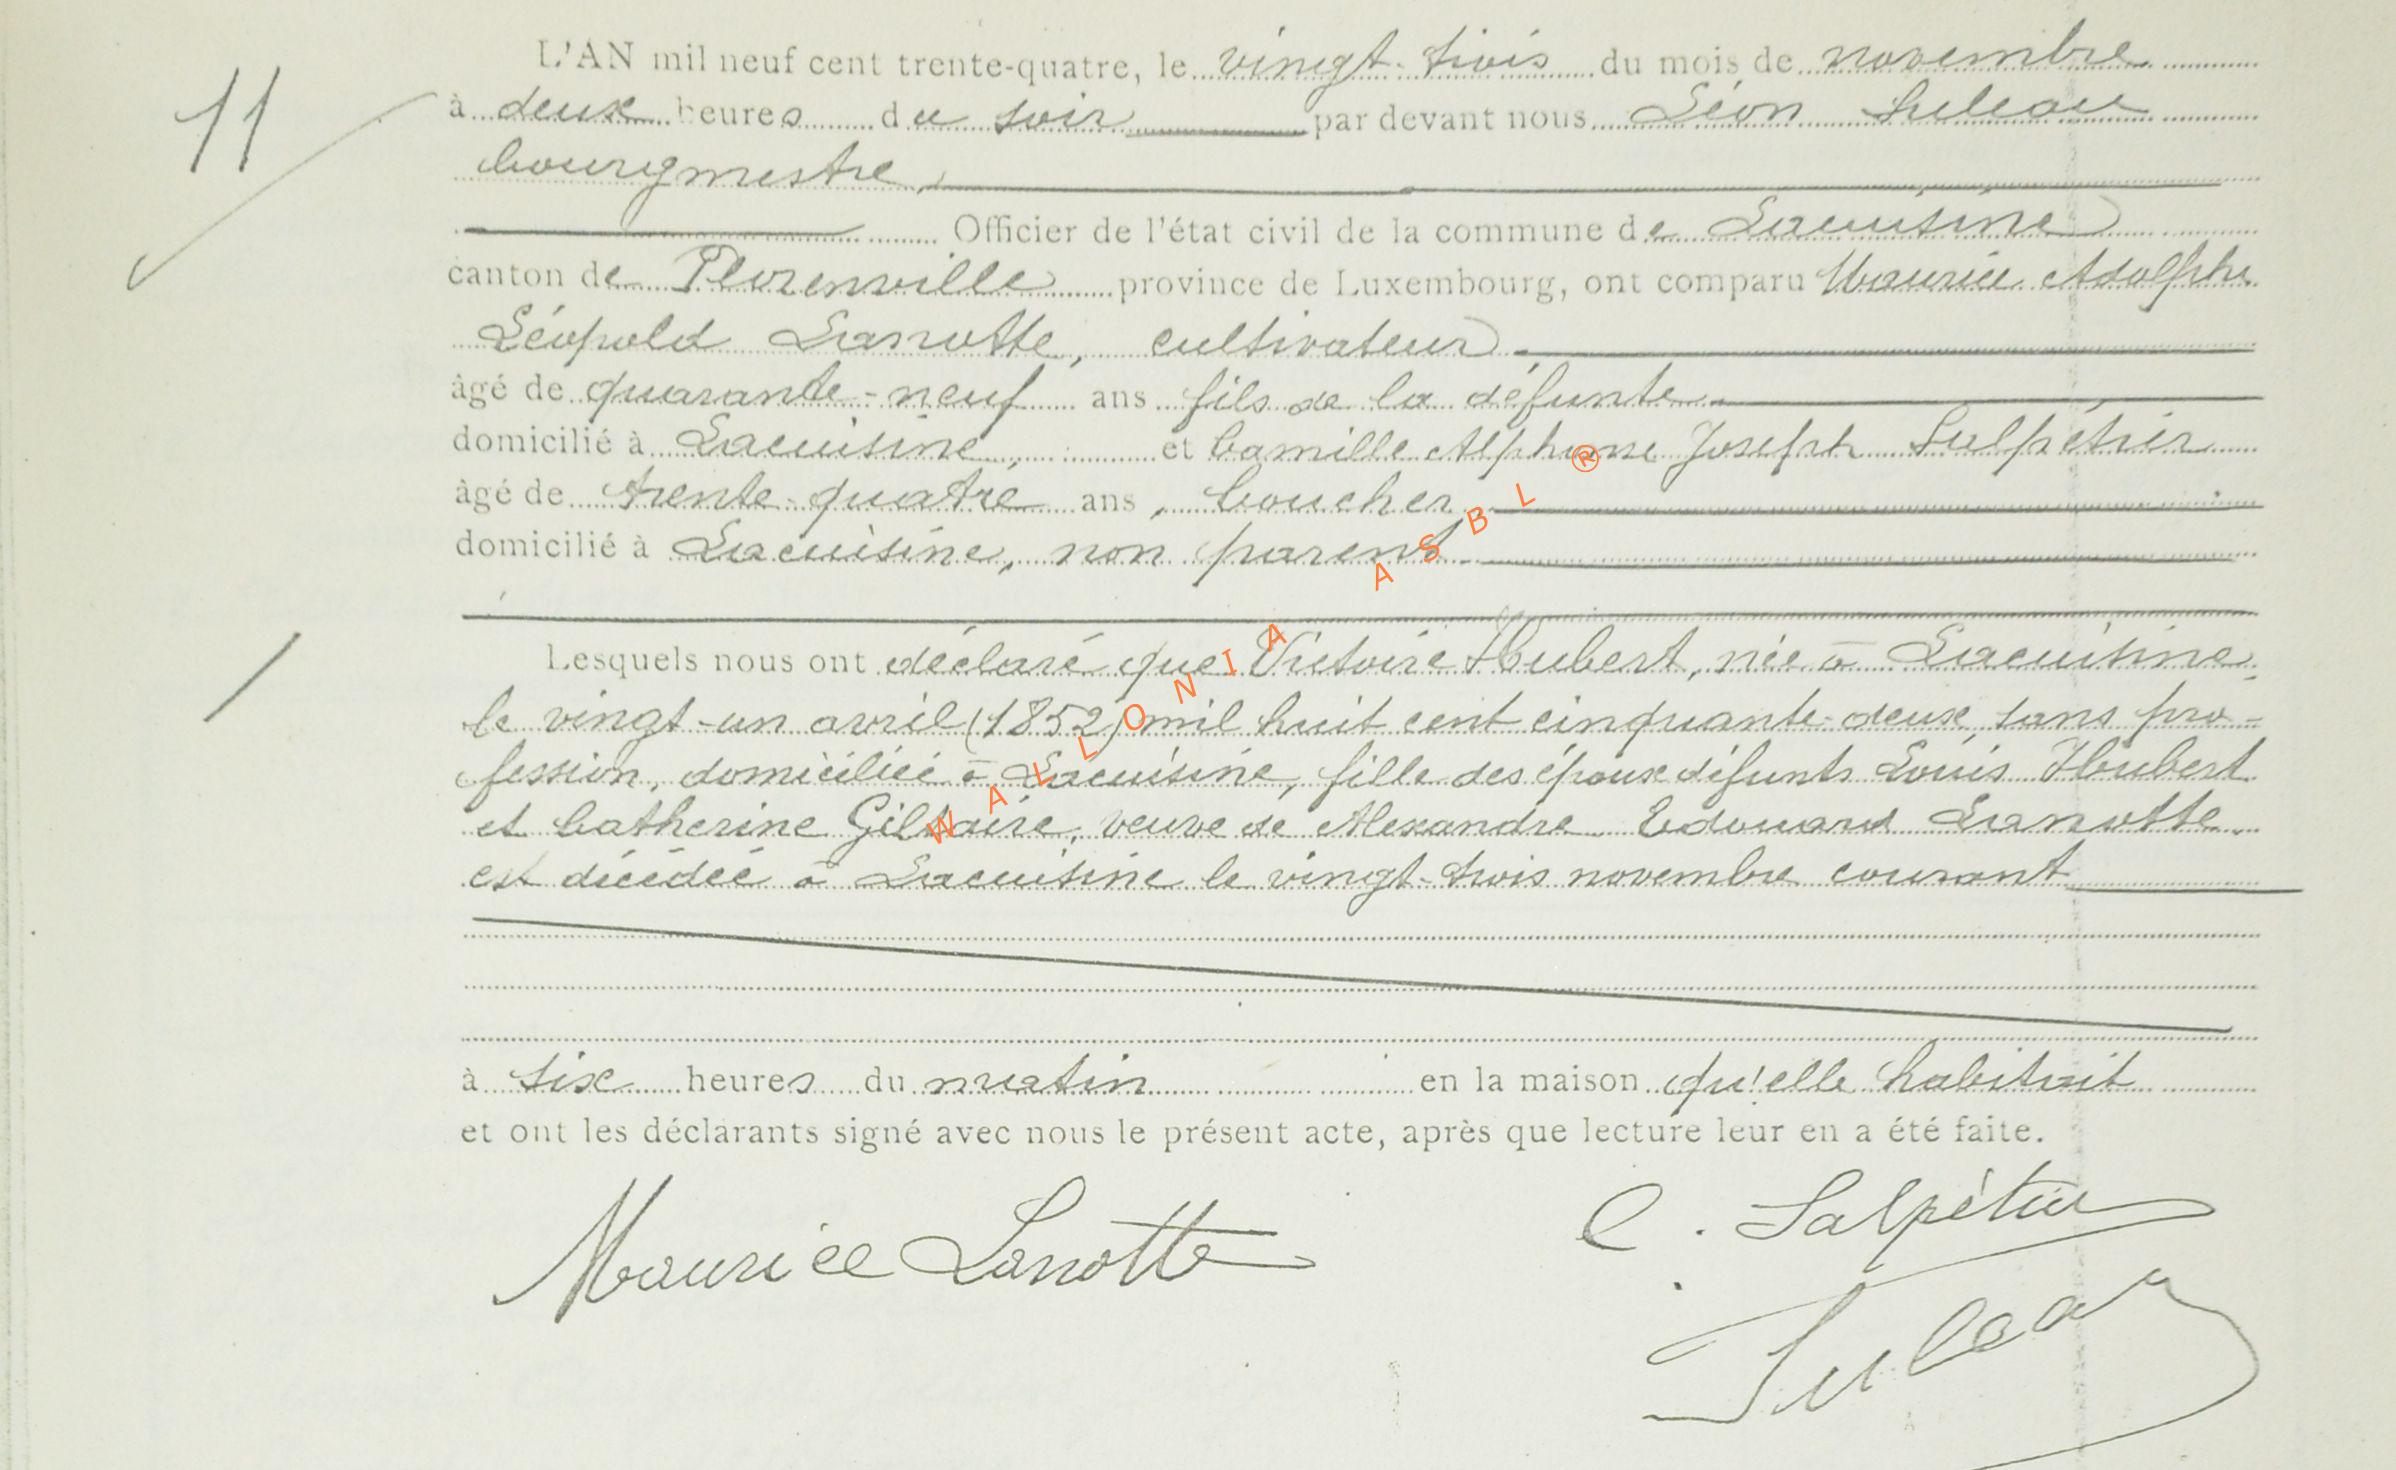 L'AN mil neuf cent trente-quatre, le vingt-trois du mois de novembre
11
à deux heures du soir par devant nous Léon Suleau
bourgmestre,
Officier de l'état civil de la commune de Lacuisine
canton de Florenville province de Luxembourg, ont comparu Maurice Adolphe
Léopold Lanotte, cultivateur
âgé de quarante-neuf ans fils de la défunte
domicilié à Lacuisine, et Camille Alphonse Joseph Salpétier
âgé de trente-quatre ans, boucher
domicilié à Lacuisine, non parent
Lesquels nous ont déclaré que Victoire Hubert, née à Lacuisine,
le vingt-un avril (1852) mil huit cent cinquante-deux, sans pro-
fession, domiciliée à Lacuisine, fille des époux défunts Louis Hubert
et Catherine Gilsaire, veuve de Alexandre Edouard Lanotte
est décédée à Lacuisine le vingt-trois novembre courant
à six heures du matin en la maison qu'elle habitait
et ont les déclarants signé avec nous le présent acte, après que lecture leur en a été faite.
Maurice Lanotte
C. Salpétier
Suleau
WALLONIA ASBL ®